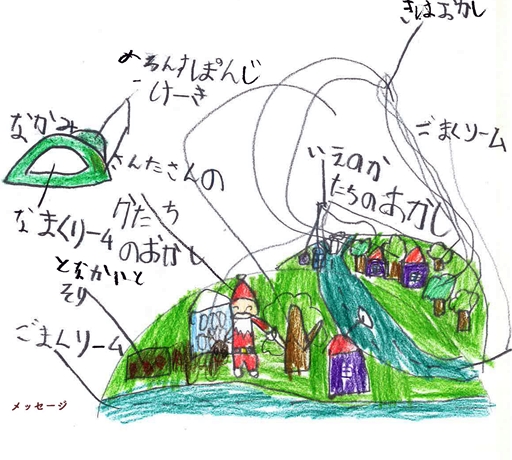 きはおかし
めろんすぽんじ
けーき
なかみ
ごまくりーム
さんたさんの
いえのか
たちのおかし
なまくりーム
かたち
のおかし
となかいと
そり
ごまくりーム
メッセージ